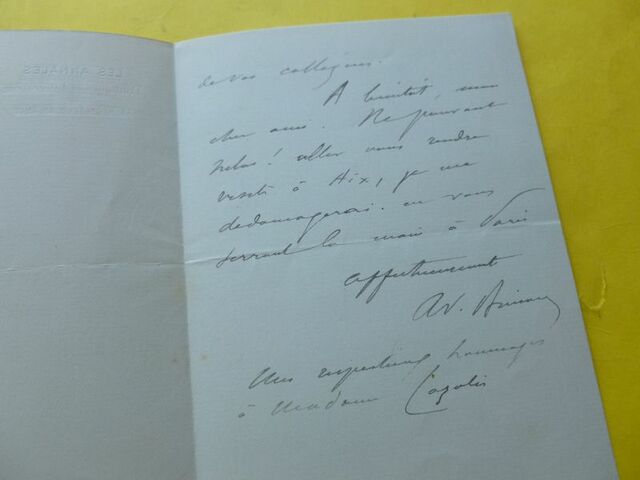 LES ANNALES
de vos collègues.
A bientôt, mon
cher ami. Ne pouvant
helas! aller vous rendre
visite à Aix, je me
dedomagerai en vous
serrant la main à Paris
affectueusement
Ad. Brisson
Mes respectueux hommages
à Madame Cazalis